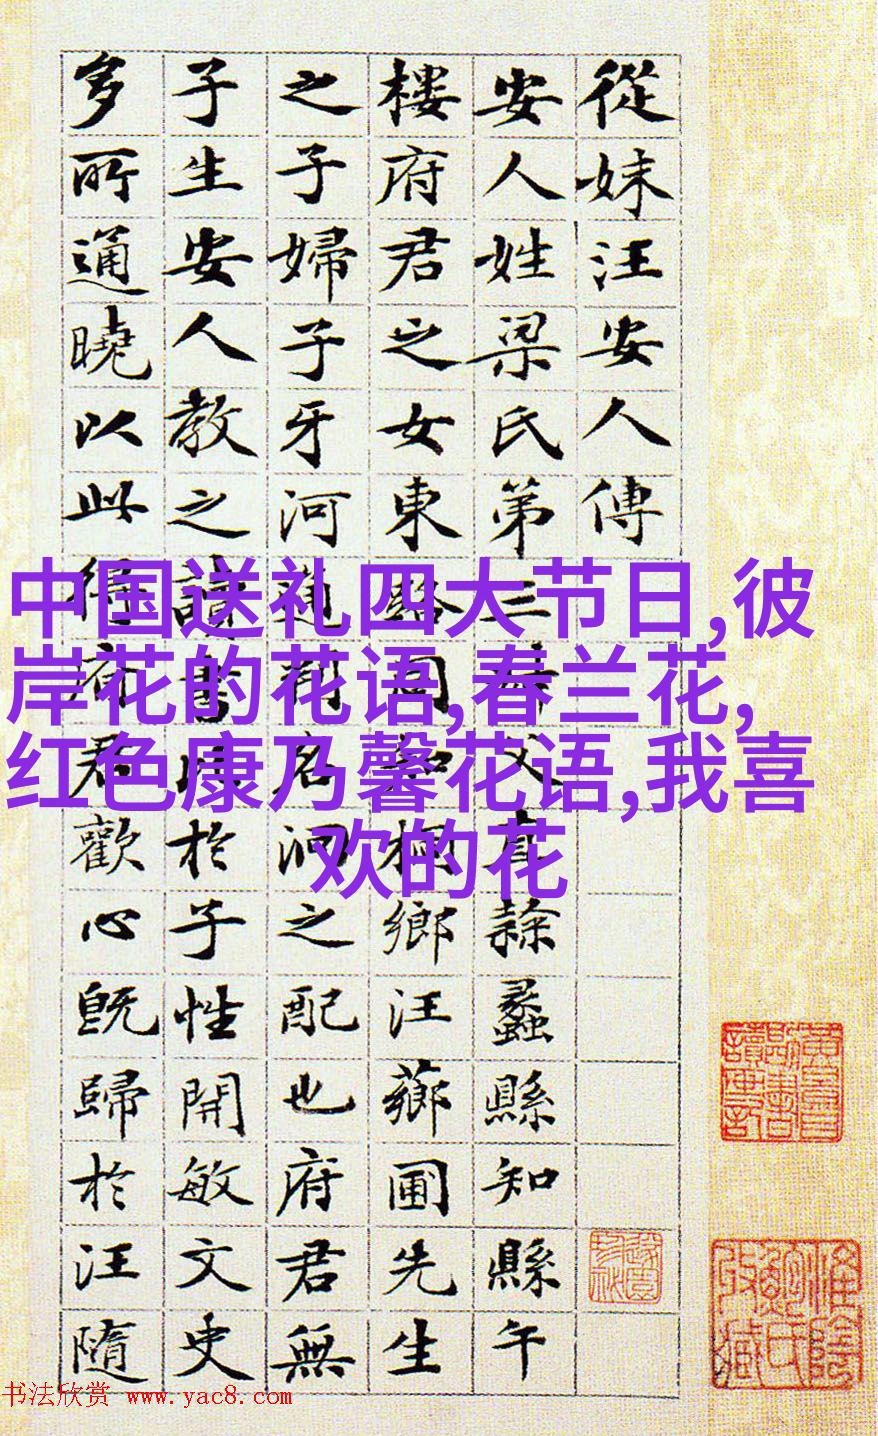 從妹汪安人傳
安人姓梁氏第三父直隸蠡縣知縣午
樓府君之女東路同知桐鄉汪薌圃先生
之子婦子牙河通判名泂之配也府君無
子生安人教之讀書於子性開敏文史
多所通曉以此得府君歡心既歸於汪隨
中国送礼四大节日,彼
岸花的花语,春兰花,
红色康乃馨花语,我喜
欢的花
书法欣赏 www.yac8.com